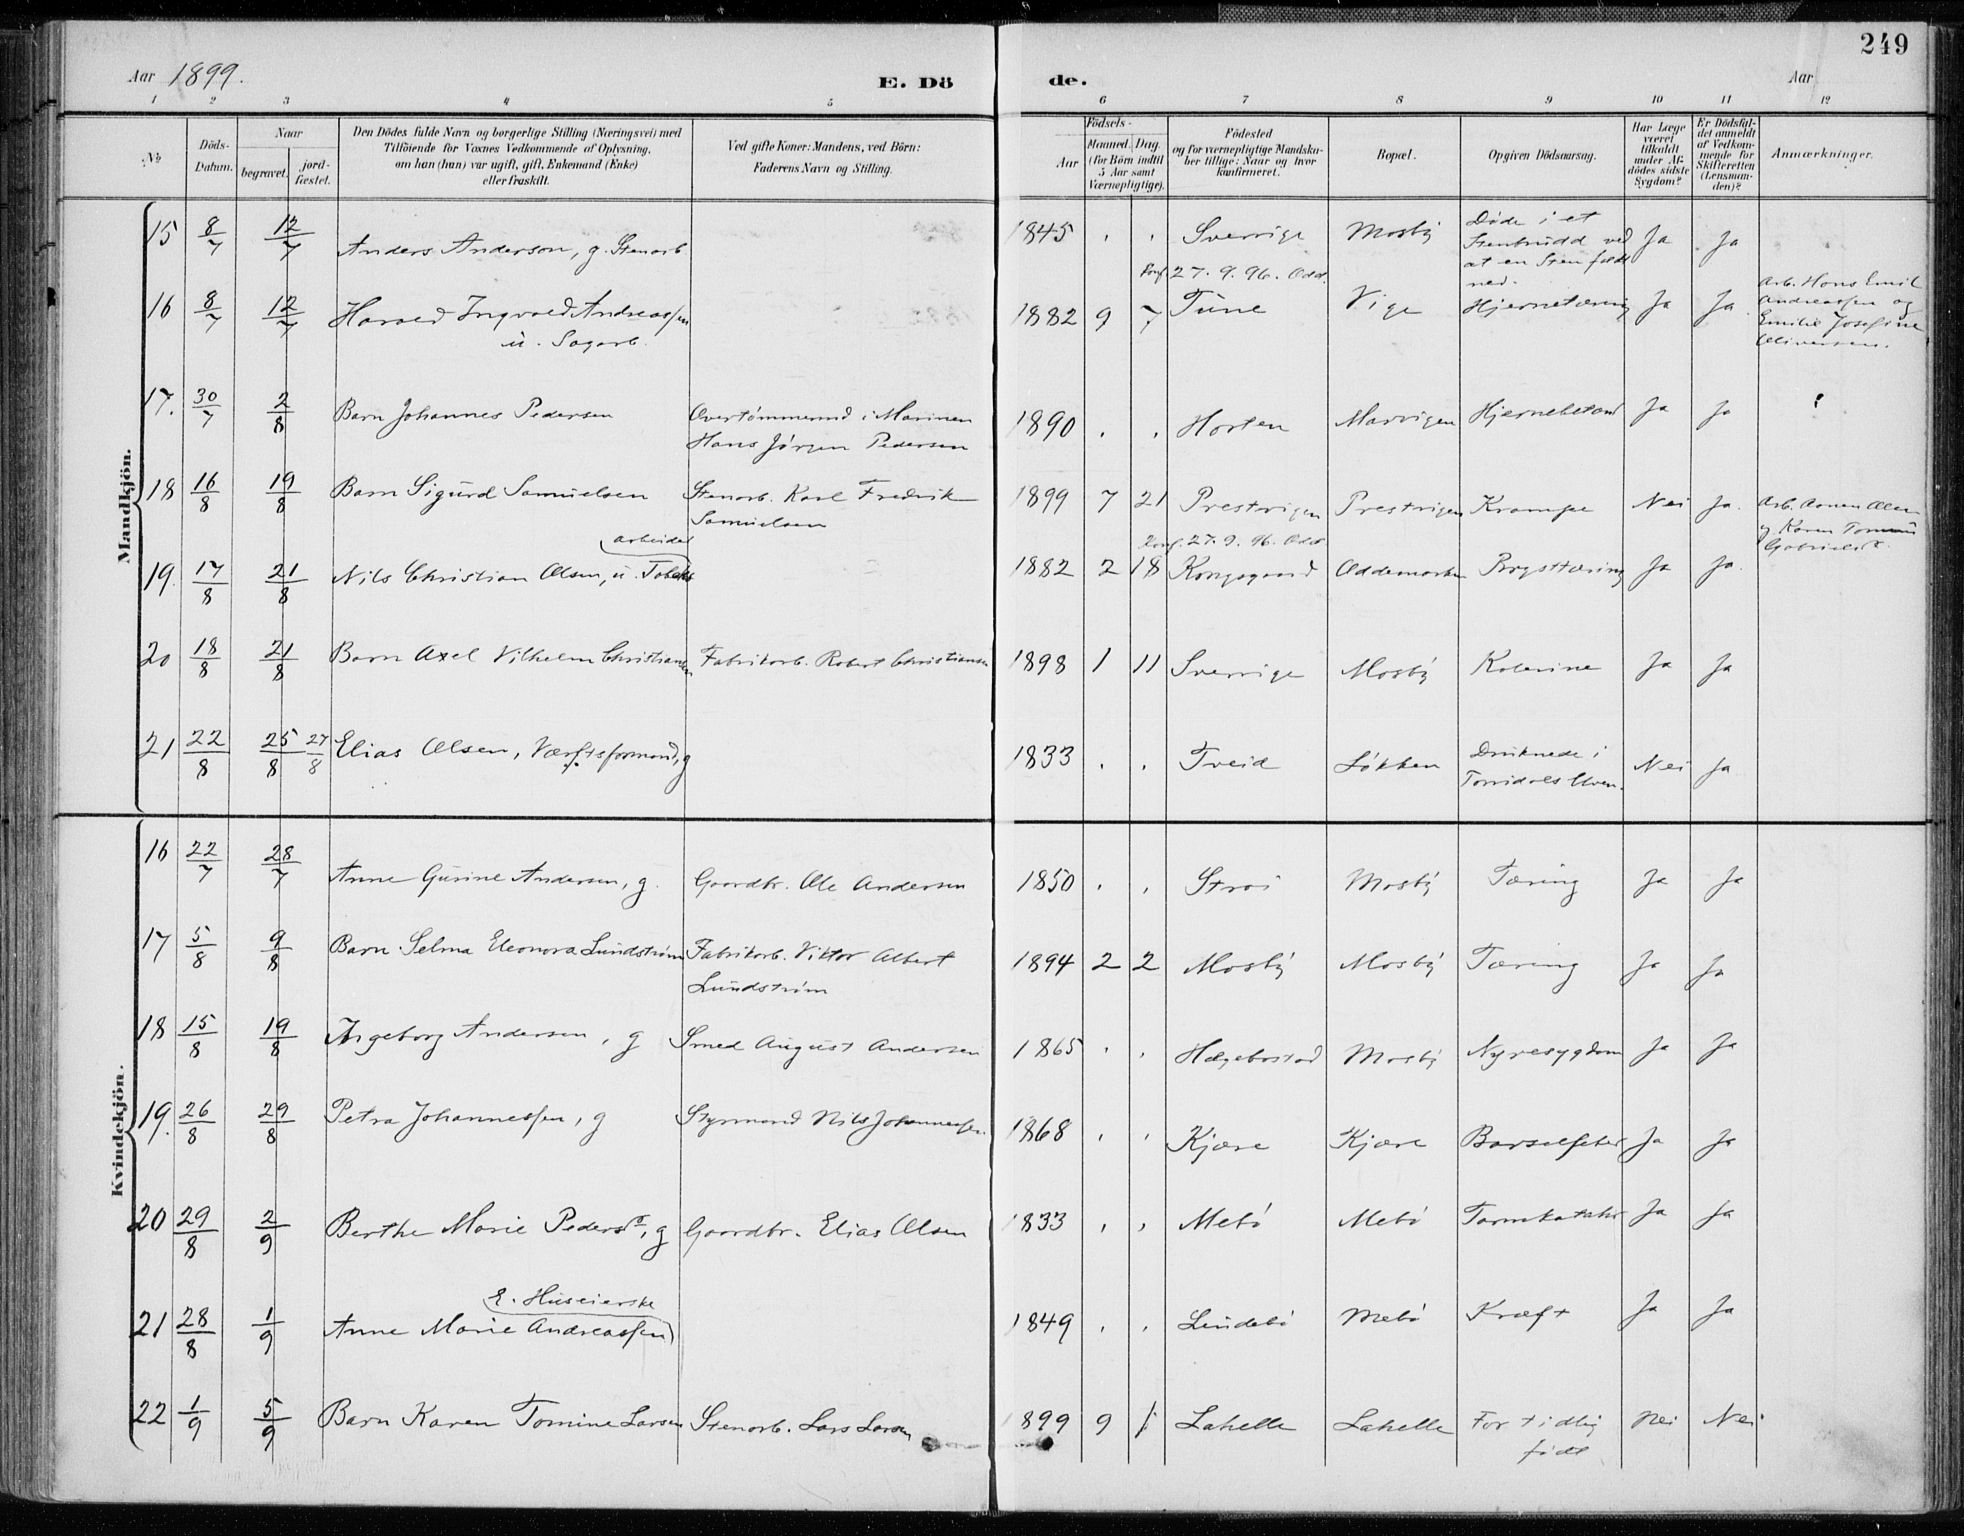 249
Aar 1899.
E. Dö
de.
Aar
1 2 3 4 5 6 7 8 9 10 11 12
No
Döds-Datum.
Naar
begravet.
jord-fæstet.
Den Dödes fulde Navn og borgerlige Stilling (Næringsvei) med
Tilföiende for Voxnes Vedkommende af Oplysning,
om han (hun) var ugift, gift, Enkemand (Enke)
eller fraskilt.
Ved gifte Koner: Mandens, ved Börn:
Faderens Navn og Stilling.
Födsels-
Aar
Maaned. Dag.
(for Börn indtil
5 Aar samt
Værnepligtige).
Födested
og for værnepligtige Mandska-
ber tillige: Naar og hvor
konfirmeret.
Bopæl.
Opgiven Dödsaarsag.
Har Læge
været
tilkaldt
under Af-
dödes sidste
Sygdom?
Er Dödsfal-
det anmeldt
af Vedkom-
mende for
Skifteretten
(Lensman-
den)?
Anmærkninger.
Mandkjön.
15 8/7 12/7 Anders Anderson, g. Stenarb 1845 . . Sverrige Mosby Døde i et Stenbrudd ved at en Sten faldt ned. Ja Ja
16 8/7 12/7 Harald Ingvald Andreassen u. Sagarb. 1882 9 7 Konf. 27.9.96. Odd. Tune Vige Hjernetæring Ja Ja Arb. Hans Emil Andreassen og Emilie Josefine Oliversen.
17. 30/7 2/8 Barn Johannes Pedersen Overtømmermd i Marinen Hans Jørgen Pedersen 1890 . . Horten Marvigen Hjernebetænd Ja Ja
18 16/8 19/8 Barn Sigurd Samuelsen Stenarb. Karl Fredrik Samuelsen 1899 7 21 Prestvigen Prestvigen Krampe Nei Ja.
19. 17/8 21/8 Nils Christian Olsen, u. Tobaks arbeider 1882 2 18 Konf. 27.9.96. Odd Kongsgaard Oddemarken Brysttæring Ja Ja. Arb. Olsen og Karen
20 18/8 21/8 Barn Axel Vilhelm Christiansen Fabrikarb. Robert Christiansen 1898 1 11 Sverrige Mosby Kolerine Ja Ja
21 22/8 25/8 27/8 Elias Olsen, Værftsformand, g 1833 . . Tveid Løkken Druknede i Torridals Elven. Nei Ja
Kvindekjön.
16 22/7 28/7 Anne Gurine Andersen, g. Gaardbr. Ole Andersen 1850 . . Strai Mosby Tæring Ja Ja
17 5/8 9/8 Barn Selma Eleonora Lundstrøm Fabrikarb. Viktor Albert Lundstrøm 1894 2 2 Mosby Mosby Tæring Ja Ja
18 15/8 19/8 Ingeborg Andersen, g Smed August Andersen 1865 . . Hægebostad Mosby Nyresygdom Ja Ja
19. 26/8 29/8 Petra Johannessen, g Styrmand Nils Johannessen 1868 . . Kjære Kjære Barselfeber Ja Ja
20 29/8 2/9 Berthe Marie Pedersdr, g Gaardbr. Elias Olsen 1833 . . Mebø Mebø Tarmkatahr Ja Ja
21 28/8 1/9 Anne Marie Andreassen E. Huseierske 1849 . . Lindebø Mebø Kræft Ja Ja
22 1/9 5/9 Barn Karen Tomine Larsen Stenarb. Lars Larsen 1899 9 1 Lahelle Lahelle For tidlig født Nei Nei